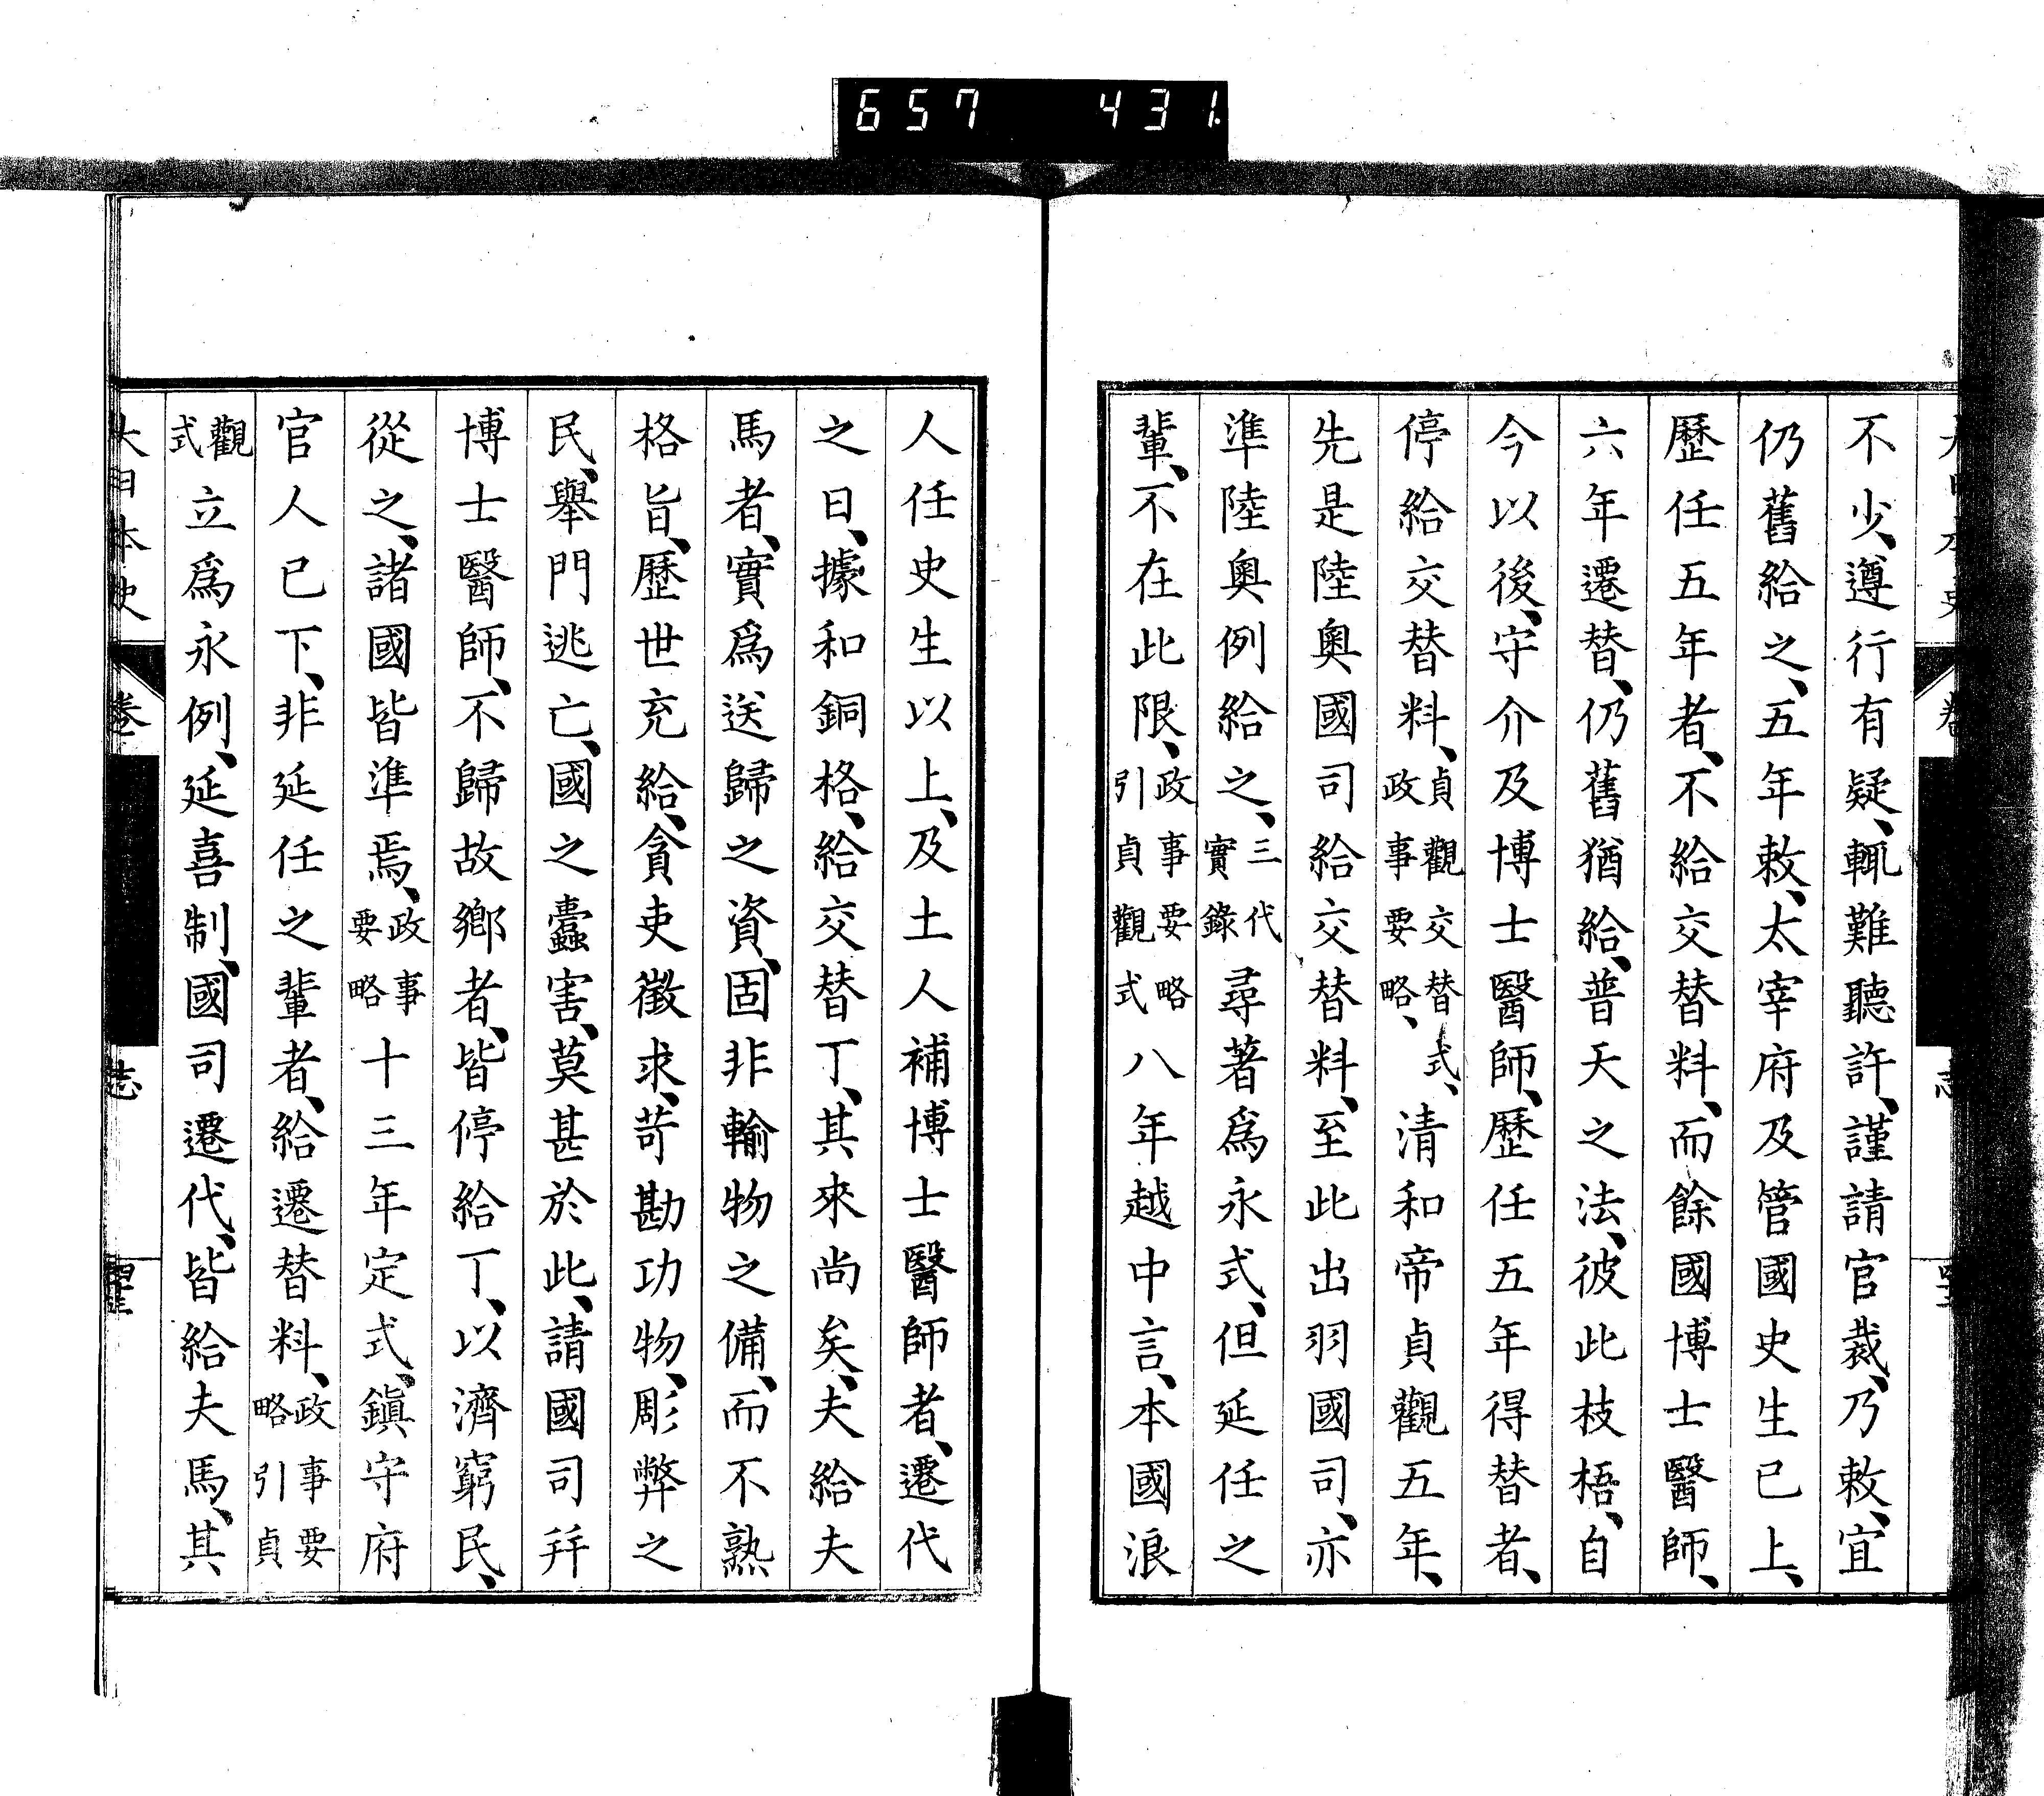 657 431
不少、遵行有疑、輒難聽許、謹請官裁、乃敕、宜
仍舊給之、五年敕、太宰府及管國史生已上、
歷任五年者、不給交替料、而餘國博士醫師、
六年遷替、仍舊猶給、普天之法、彼此枝梧、自
今以後、守介及博士醫師、歷任五年得替者、
停給交替料、貞觀交替式、政事要略、清和帝貞觀五年、
先是陸奧國司給交替料、至此出羽國司、亦
準陸奧例給之、三代實錄尋著爲永式、但延任之
輩、不在此限、政事要略引貞觀式八年越中言、本國浪
人任史生以上、及土人補博士醫師者、遷代
之日、據和銅格、給交替丁、其來尚矣、夫給夫
馬者、實爲送歸之資、固非輸物之備、而不熟
格旨、歷世充給、貪吏徵求、苛勘功物、彫弊之
民、舉門逃亡、國之蠹害、莫甚於此、請國司幷
博士醫師、不歸故鄉者、皆停給丁、以濟窮民、
從之、諸國皆準焉、政事要略十三年定式、鎭守府
官人已下、非延任之輩者、給遷替料、政事要略引貞
觀式立爲永例、延喜制、國司遷代、皆給夫馬、其
大日本史 卷 志